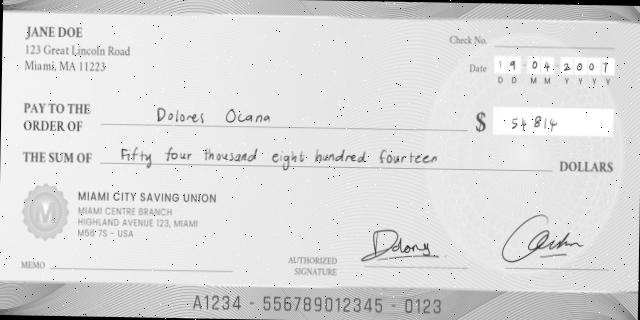 JANE DOE
123 Great Lincoln Road
Miami, MA 11223
Check No.
Date 19 04 2007
D D M M Y Y Y Y
PAY TO THE
ORDER OF Dolores Ocana
$ 54 814
THE SUM OF Fifty four thousand eight hundred fourteen DOLLARS
M
MIAMI CITY SAVING UNION
MIAMI CENTRE BRANCH
HIGHLAND AVENUE 123, MIAMI
M56 7S - USA
MEMO
AUTHORIZED
SIGNATURE
A1234 - 556789012345 - 0123